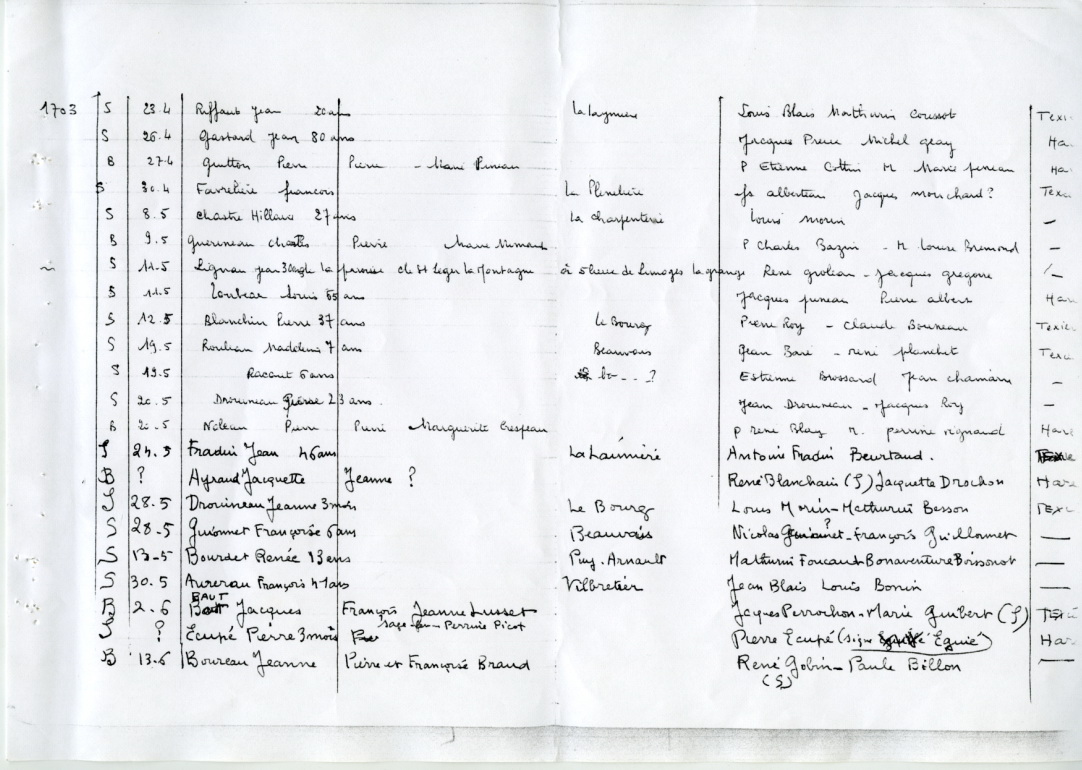 1703 S 23.4 Riffaut Jean 20 ans La Laymiere Louis Blais Mathurin Coussot Texi
S 26.4 Gastard Jean 80 ans Jacques Pierre Michel geay Ha
B 27.4 Guitton Pierre Pierre - Marie Puneau P Etienne Cottin M Marie puneau Ha
S 30.4 Favreliere francois La Pleneliere Jacques morichard? Texi
S 8.5 Chastre Hillaire 27 ans La charpenterie Louis morin —
B 9.5 Guerineau charles Pierre Marie P Charles Bazin - M Louise Bremond —
~ S 11.5 Lignau jean la paroisse de St Leger la Montagne à 5 lieue de Limoges la grange René grolean - Jacques gregoire
S 11.5 Loubeau Louis 65 ans Jacques puneau Pierre albert Har
S 12.5 Blanchin Pierre 37 ans Le Bourg Pierre Roy - Claude Bouneau Texier
S 19.5 Roulleau Madeleine 7 ans Beauvais Jean Baré - rené planchet Texi
S 19.5 Racaut 6 ans la - - - ? Estienne Brossard Jean chamarre —
S 20.5 Drouneau Pierre 23 ans. Jean Drouneau - Jacques Roy —
B Noleau Pierre Pierre Marguerite Crespeau P René Blay M. perrine rignaud Hare
S 24.5 Fradin Jean 46 ans La Laumière Antoine Fradin Beurtaud.
B ? Ayraud Jacquette Jeanne ? René Blanchain (S) Jacquette Drochon Hare
S 28.5 Drouineau Jeanne 3 mois Le Bourg Louis Morin - Mathurin Besson TEXI
S 28.5 Guionnet Françoise 6 ans Beauvais Nicolas Guionnet ? - François Guillonnet —
S 13-5 Bourdet Renée 13 ans Puy. Arnault Mathurin Foucaud Bonaventure Boissonot —
S 30.5 Aurereau François 41 ans Vilbretier Jean Blais Louis Bonin —
B 2.6 BAUT Jacques François Jeanne Lusset Jacques Perrochon - Marie Guibert (S) Texi
S ? Ecupé Pierre 3 mois sage - - Perrine Picot Pierre Ecupé (signe Eguié) Har
B 13.6 Boureau Jeanne Pierre et Françoise Braud René Gobin - Paule Billon —
(S)